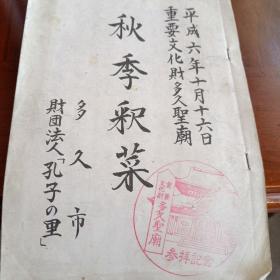 平成六年十月十六日
重要文化財多久聖廟
秋季釈菜
多久市
財団法人「孔子の里」
重要文化財
多久聖廟
参拝記念